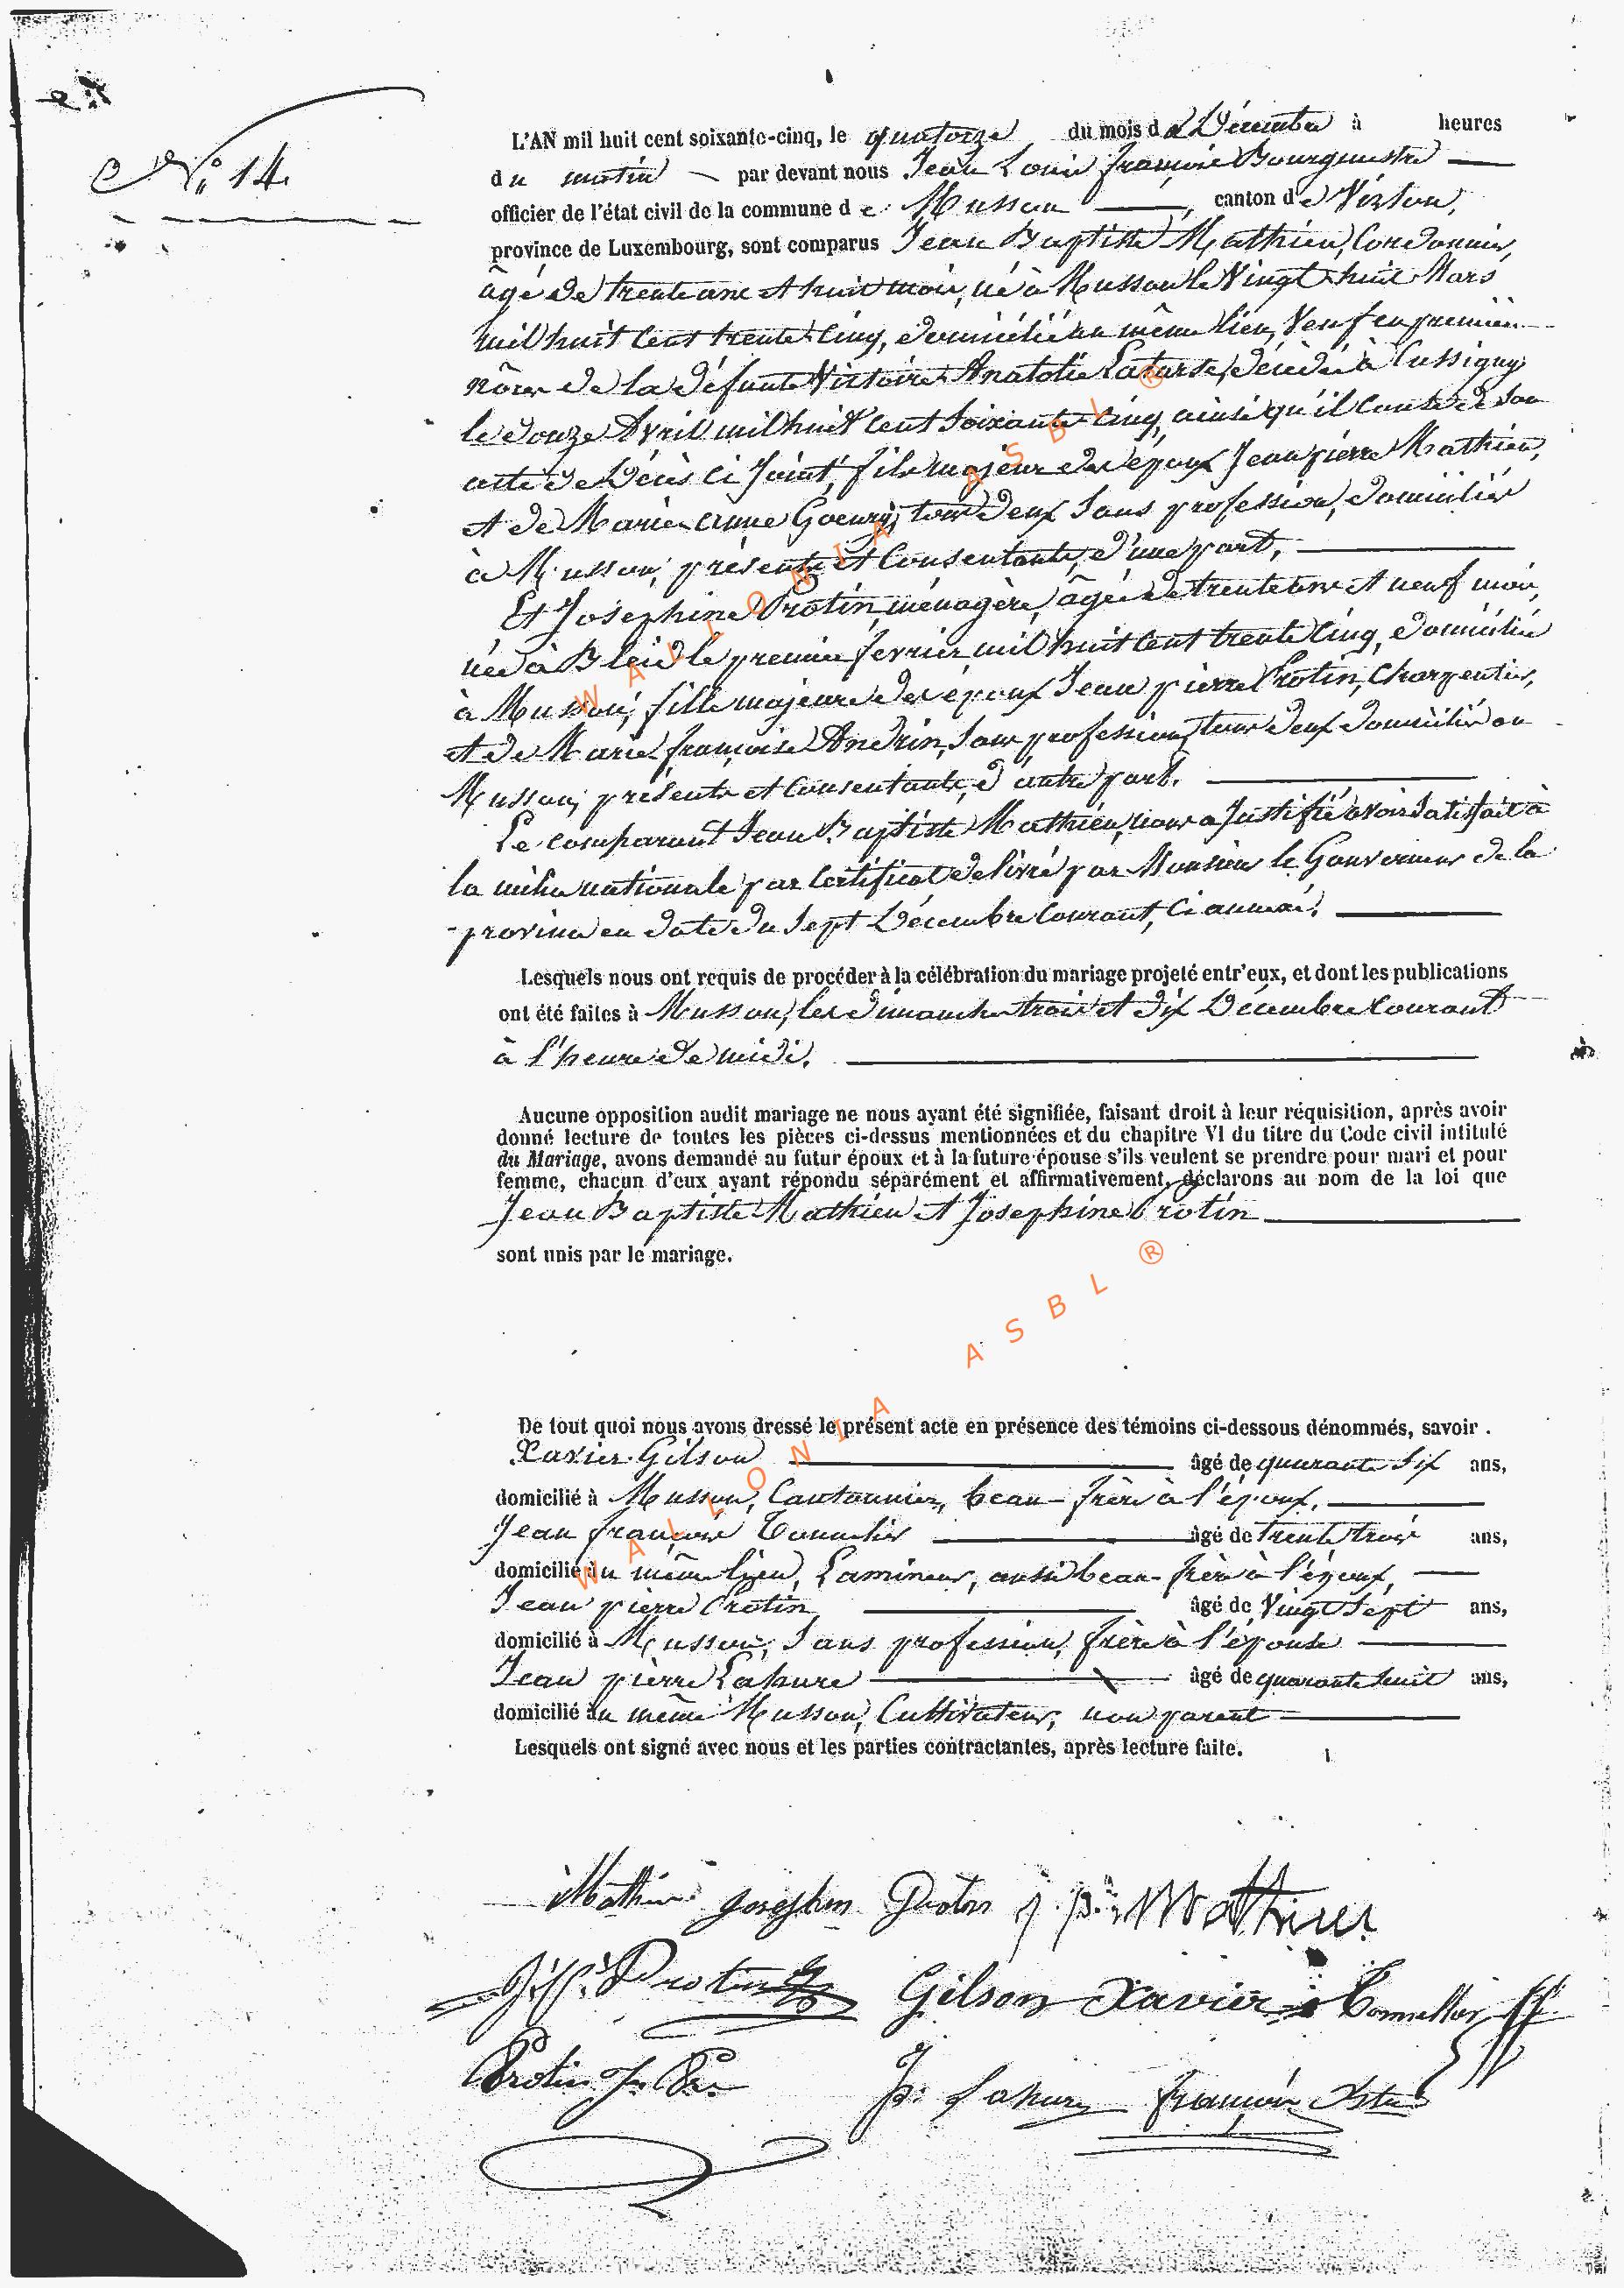 N° 14.
L'AN mil huit cent soixante-cinq, le quatorze du mois de Décembre à heures
du matin par devant nous Jean Louis françois Bourgmestre
officier de l'état civil de la commune de Musson, canton de Virton,
province de Luxembourg, sont comparus Jean Baptiste Mathieu, Cordonnier,
âgé de trente ans et huit mois, né à Musson le Vingt-huit Mars
mil huit cent trente-cinq, domicilié au même lieu, Veuf en première
nôces de la défunte Victoire Anatolie, décédée à Cussigny
le douze Avril mil huit cent Soixante-cinq, ainsi qu'il conste de son
acte de Décès ci joint, fils majeur des époux Jean pierre Mathieu,
et de Marie-anne Goeury, tous deux Sans profession, domiciliés
à Musson, présents et Consentants, d'une part,
Et Josephine Protin, ménagère, âgée de trente ans et neuf mois,
née à Bleid le premier février mil huit cent trente cinq, domiciliée
à Musson, fille majeure des époux Jean pierre Protin, Charpentier,
et de Marie françoise Andrin, Sans profession, tous deux domiciliés au
Musson, présents et Consentants, d'autre part.
Le comparant Jean Baptiste Mathieu, nous a Justifié avoir Satisfait à
la milice nationale par Certificat délivré par Monsieur le Gouverneur de la
province en date du Sept Décembre Courant, Ci annexé.
Lesquels nous ont requis de procéder à la célébration du mariage projeté entr'eux, et dont les publications
ont été faites à Musson, les dimanches trois et dix Décembre Courant
à l'heure de midi.
Aucune opposition audit mariage ne nous ayant été signifiée, faisant droit à leur réquisition, après avoir
donné lecture de toutes les pièces ci-dessus mentionnées et du chapitre VI du titre du Code civil intitulé
du Mariage, avons demandé au futur époux et à la future épouse s'ils veulent se prendre pour mari et pour
femme, chacun d'eux ayant répondu séparément et affirmativement, déclarons au nom de la loi que
Jean Baptiste Mathieu et Josephine Protin
sont unis par le mariage.
De tout quoi nous avons dressé le présent acte en présence des témoins ci-dessous dénommés, savoir .
Xavier Gilson âgé de quarante Six ans,
domicilié à Musson, Cantonnier, beau-frère à l'époux,
Jean françois âgé de trente trois ans,
domicilié au même lieu, Lamineur, aussi beau-frère à l'époux,
Jean pierre Protin âgé de Vingt Sept ans,
domicilié à Musson, Sans profession, frère à l'épouse
Jean pierre Lahure âgé de quarante huit ans,
domicilié au même Musson, Cultivateur, non parent
Lesquels ont signé avec nous et les parties contractantes, après lecture faite.
Mathieu Josephin Protin j. p. Mathieu
J. P. Protin Gilson Xavier
Protin J. Pre.
J. p. Lahure françois
WALLONIA ASBL ®
WALLONIA ASBL ®